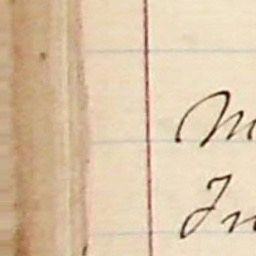 M
In